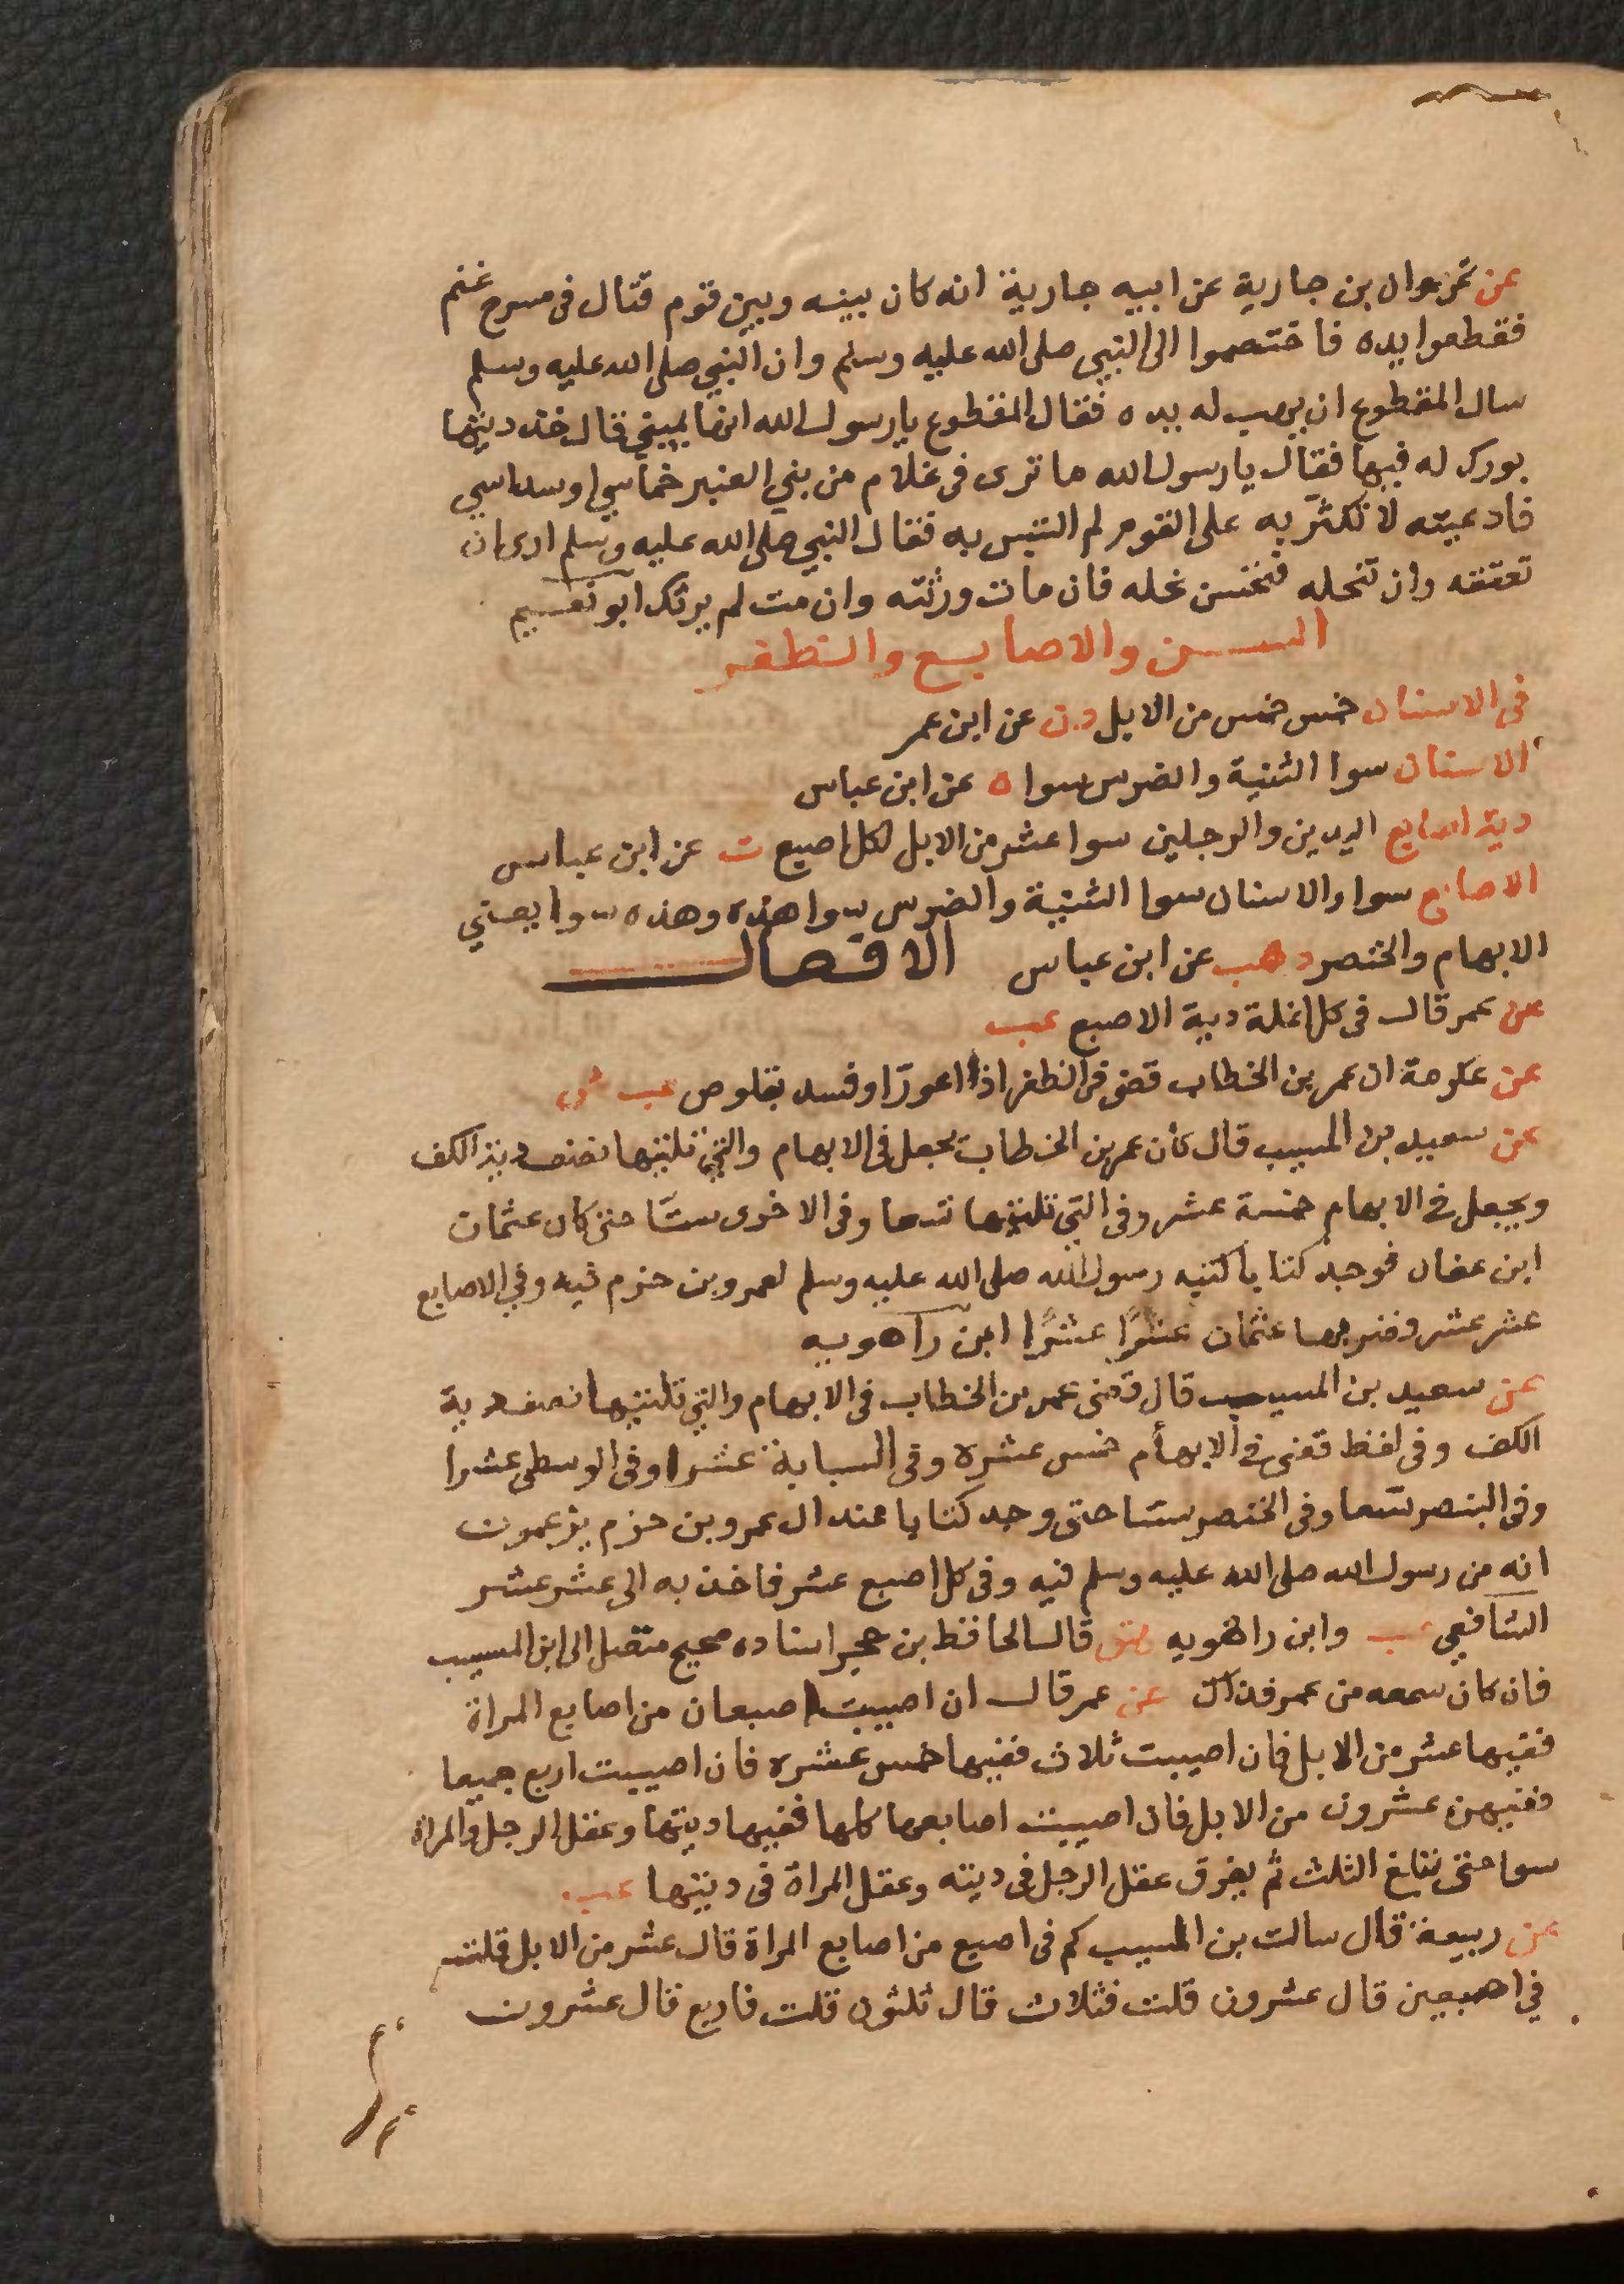 عن نمران بن جارية عن ابيه جارية انه كان بينه وبين قوم قتال فى مسرح غنم
فقطعوا يده فاختصموا الى النبي صلى الله عليه وسلم وان النبي صلى الله عليه وسلم
سال المقطوع ان يهب له يده فقال المقطوع يا رسول الله انها يميني قال خذ ديتها
بورك له فيها فقال يا رسول الله ما ترى فى غلام من بني العنبر خماسي او سداسي
فادعيته لا نكثر به على القوم لم التبس به فقال النبي صلى الله عليه وسلم ارى ان
تعتقه وان تنحله فتحسن نحله فان مات ورثته وان مت لم يرثك ابو نعيم
السن والاصابع والظفر
فى الاسنان خمس خمس من الابل د.ن عن ابن عمر
الاسنان سوا الثنية والضرس سوا ه عن ابن عباس
دية اصابع اليدين والرجلين سوا عشر من الابل لكل اصبع ت عن ابن عباس
الاصابع سوا والاسنان سوا الثنية والضرس سوا هذه وهذه سوا يعني
الابهام والخنصر د هب عن ابن عباس الافعال
عن عمر قال فى كل انملة دية الاصبع عب
عن عكرمة ان عمر بن الخطاب قضى فى الظفر اذا اعورّ او فسد بقلوص عب ش
عن سعيد بن المسيب قال كان عمر بن الخطاب يجعل فى الابهام والتي تليها نصف دية الكف
ويجعل في الابهام خمسة عشر وفى التي تليها تسعا وفى الاخرى ستّا حتى كان عثمان
ابن عفان فوجد كتابا كتبه رسول الله صلى الله عليه وسلم لعمرو بن حزم فيه وفي الاصابع
عشر عشر وصيرها عثمان عشرًا عشرًا ابن راهويه
عن سعيد بن المسيب قال قضى عمر بن الخطاب فى الابهام والتي تليها نصف دية
الكف وفى لفظ قضى في الابهام خمس عشره وفى السبابة عشرا وفى الوسطى عشرا
وفى البنصر تسعا وفى الخنصر ستا حتى وجد كتابا عند ال عمرو بن حزم يزعمون
انه من رسول الله صلى الله عليه وسلم فيه وفى كل اصبع عشر فاخذ به الى عشر عشر
الشافعي عب وابن راهويه هق قال الحافظ بن حجر اسناده صحيح متصل الى ابن المسيب
فان كان سمعه من عمر فذاك عن عمر قال ان اصيبت اصبعان من اصابع المراة
ففيها عشر من الابل فان اصيبت ثلاث ففيها خمس عشره فان اصيبت اربع جميعا
ففيهن عشرون من الابل فان اصيبت اصابعها كلها ففيها ديتها وعقل الرجل والمراة
سوا حتى تبلغ الثلث ثم يفرق عقل الرجل فى ديته وعقل المراة فى ديتها عب
عن ربيعة قال سالت بن المسيب كم فى اصبع من اصابع المراة قال عشر من الابل قلت
في اصبعين قال عشرون قلت فثلاث قال ثلثون قلت فاربع قال عشرون